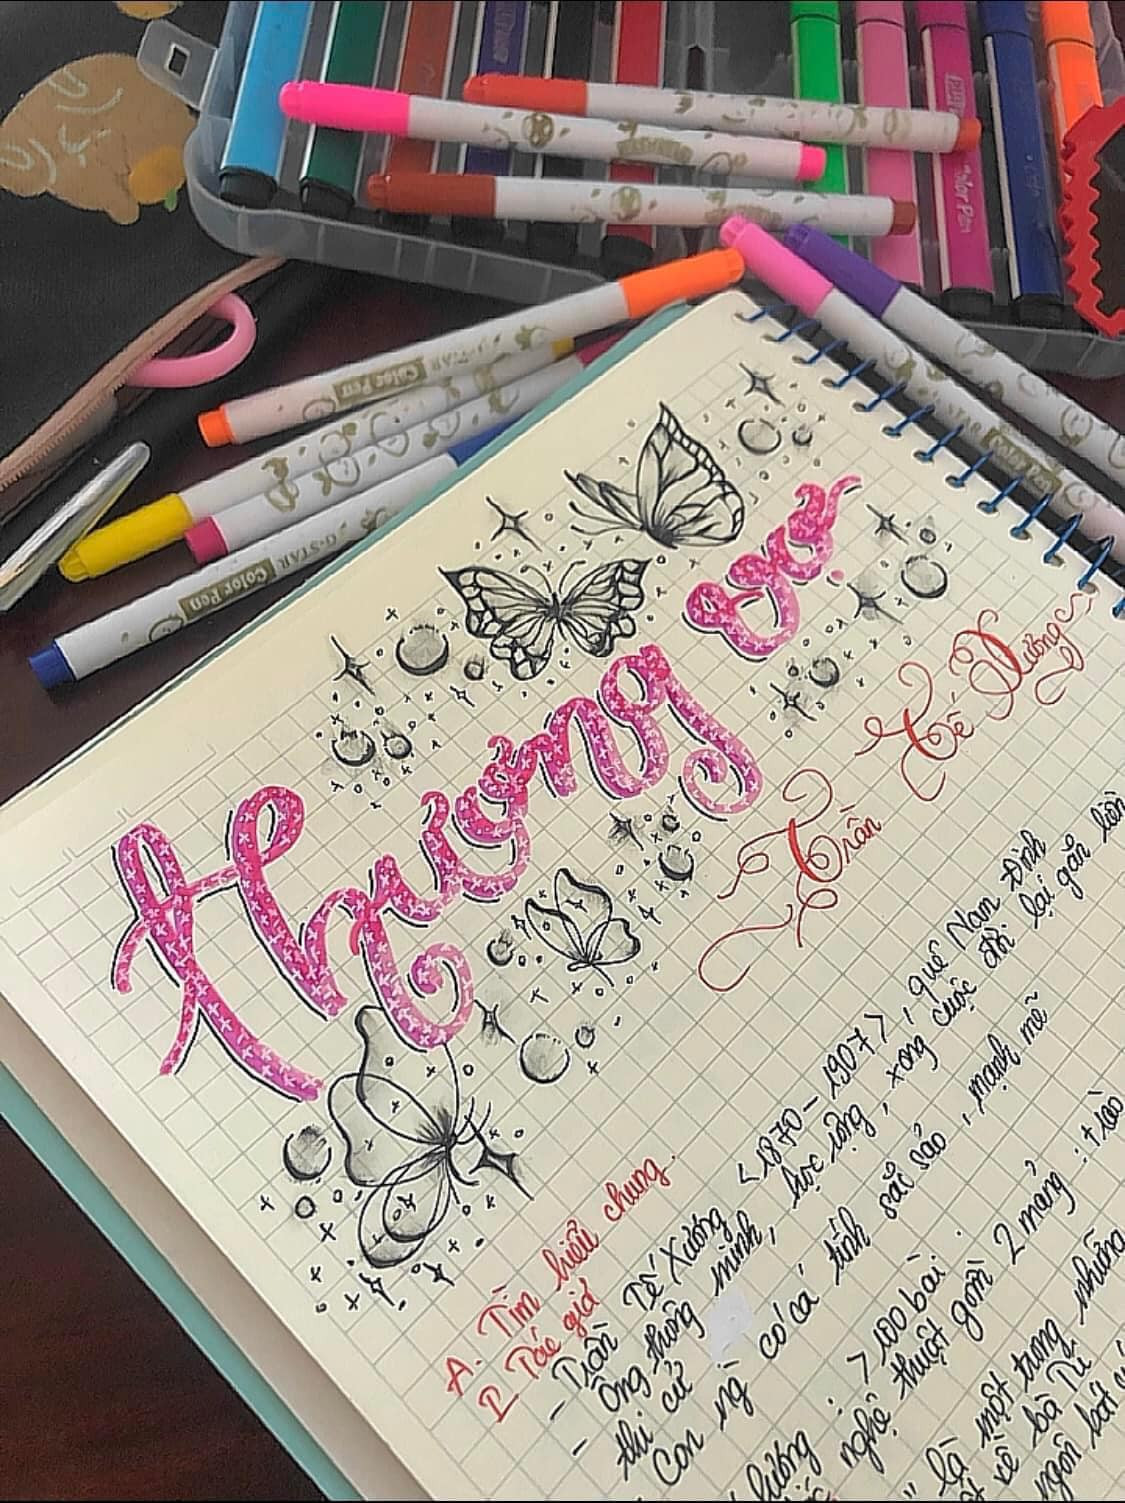 Color Pen
Color Pen
G-STAR
Color Pen
G-STAR
Color Pen
thương vợ
Trần Tế Xương
A. Tìm hiểu chung.
I. Tác giả
- Trần Tế Xương <1870 - 1907>, quê Nam Định
- Ông thông minh, học rộng, xong cuộc đời lại gắn liền
thi cử
- Con ng có cá tính sắc sảo, mạnh mẽ
lượng : > 100 bài.
nghệ thuật gồm 2 mảng : trào
" là một trong những
về bà Tú
ngôn bát